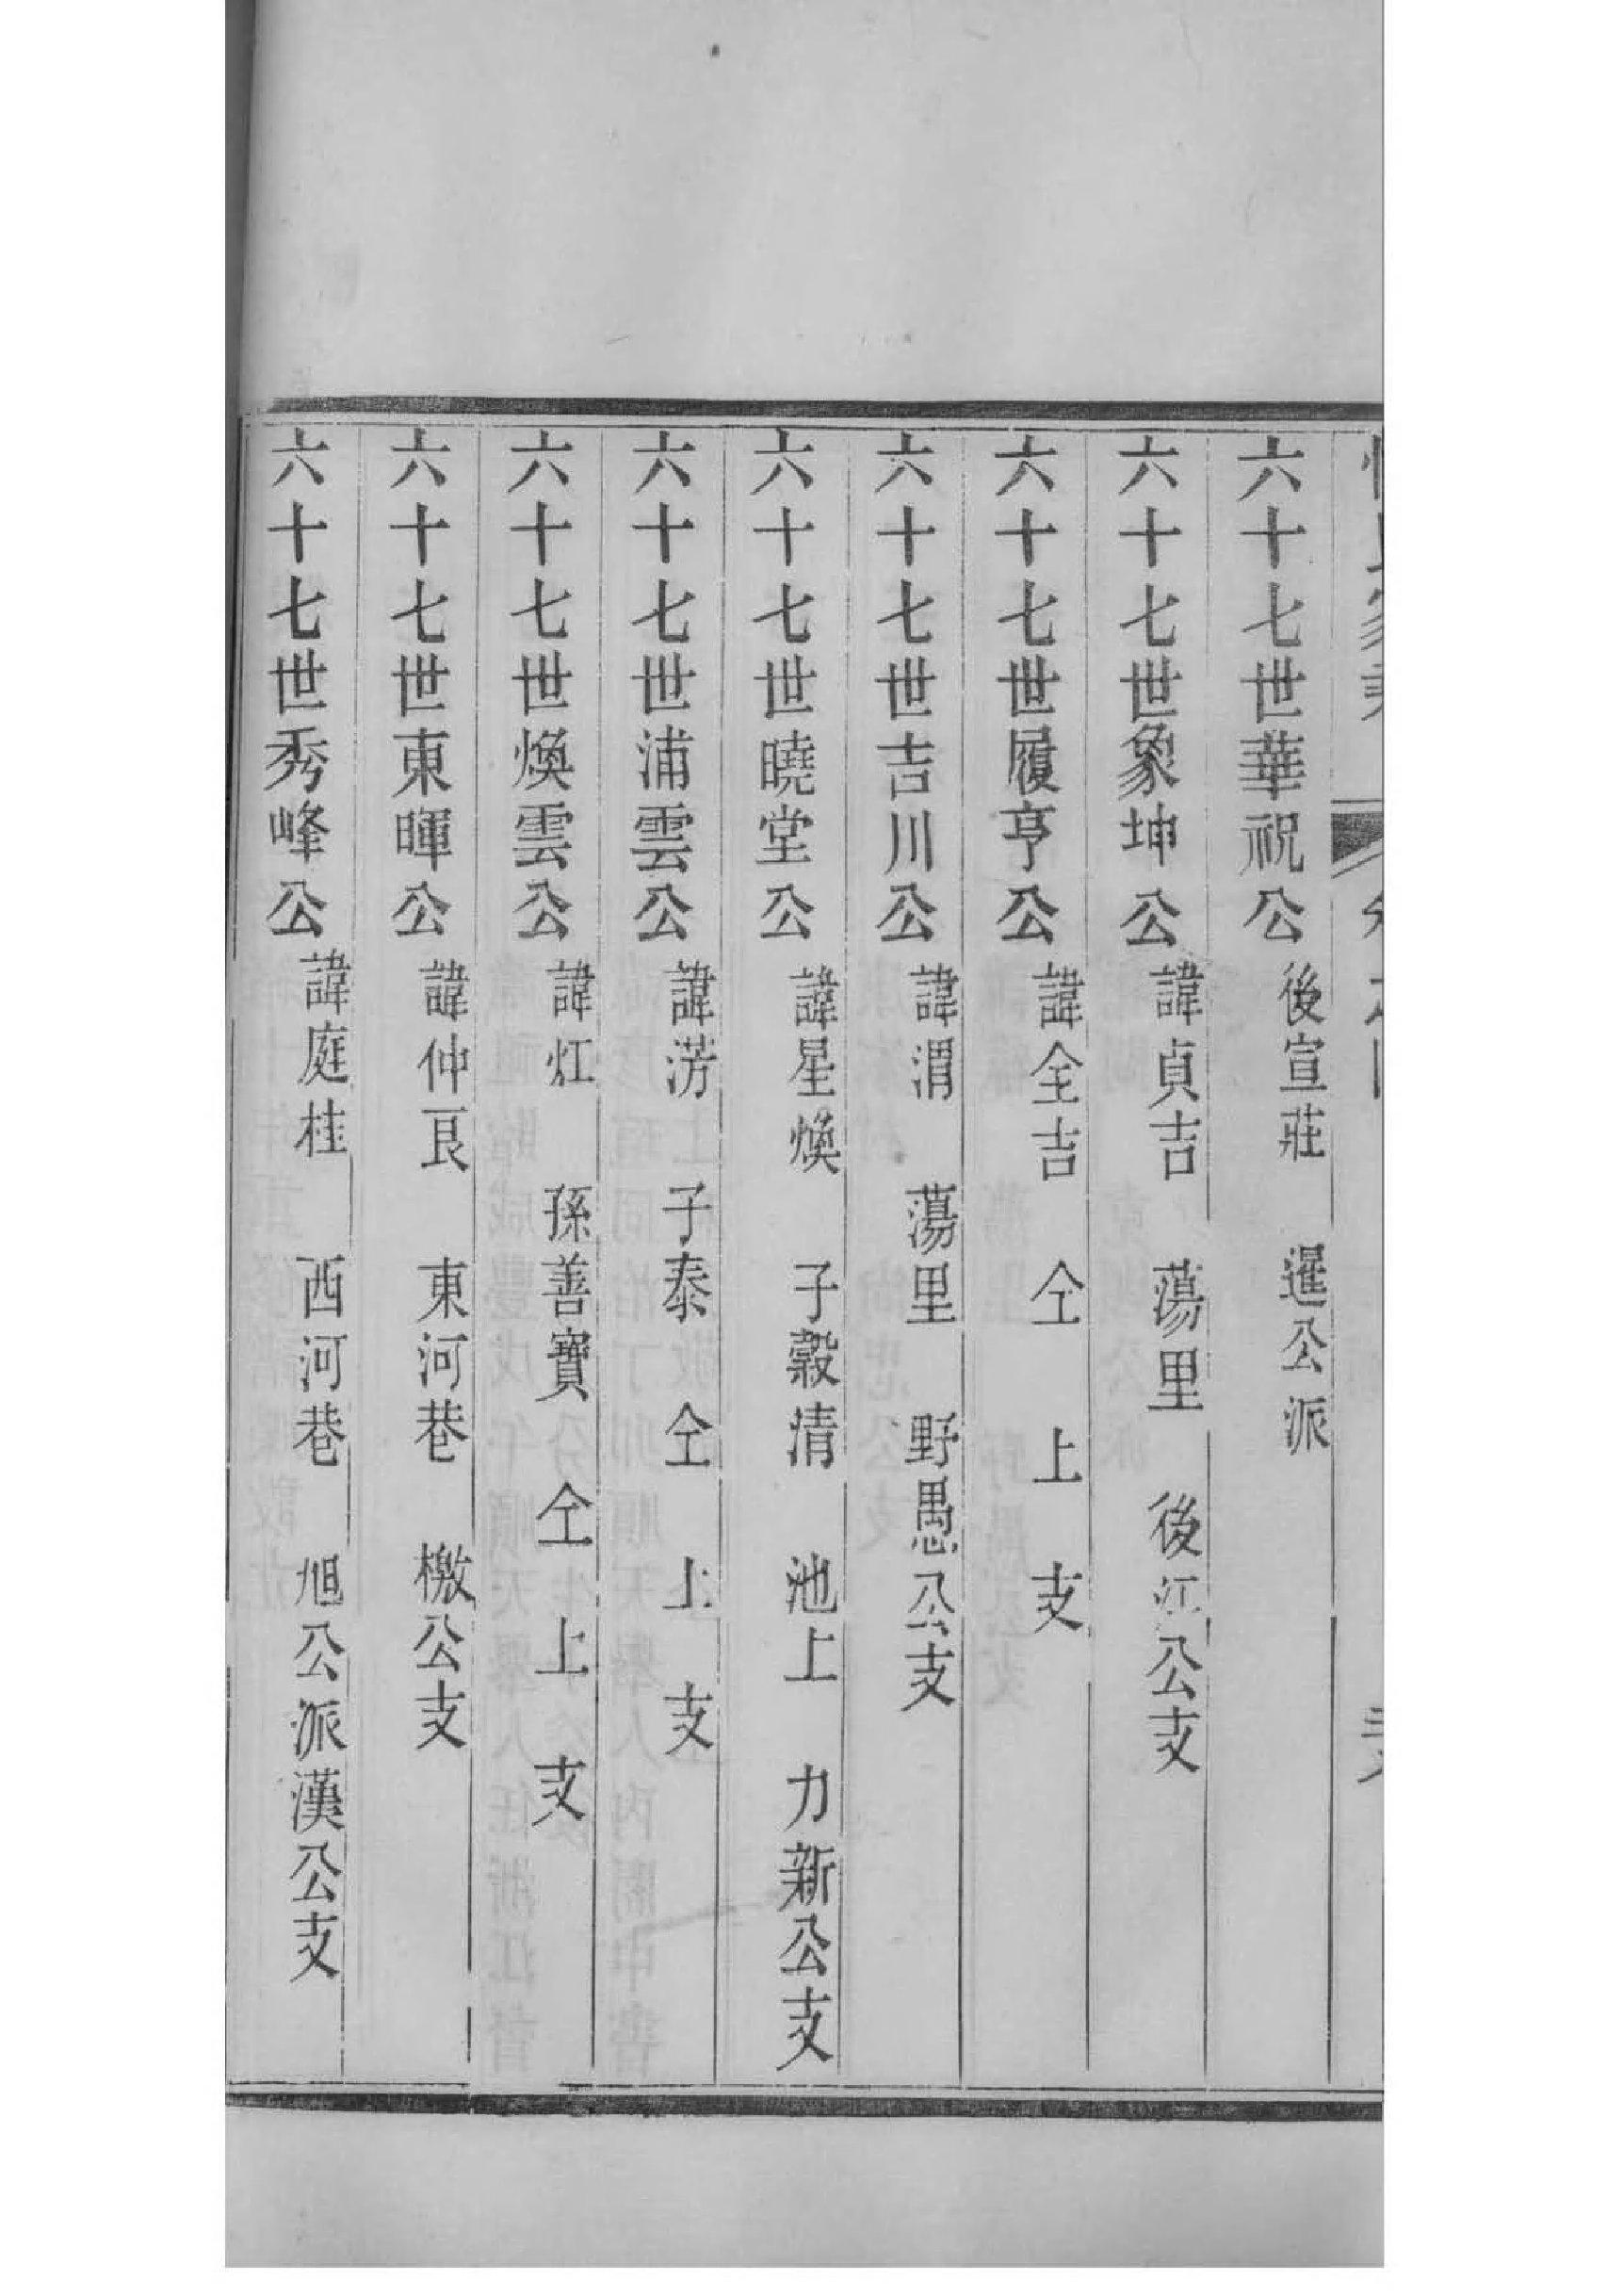 六十七世華祝公 後宣莊 暹公派
六十七世象坤公 諱貞吉 蕩里 後江公支
六十七世履亨公 諱全吉 仝上支
六十七世吉川公 諱渭 蕩里 野愚公支
六十七世曉堂公 諱星煥 子穀清 池上 力新公支
六十七世浦雲公 諱淓 子泰 仝上支
六十七世煥雲公 諱灴 孫善寶 仝上支
六十七世東暉公 諱仲良 東河巷 檄公支
六十七世秀峰公 諱庭桂 西河巷 旭公派漢公支